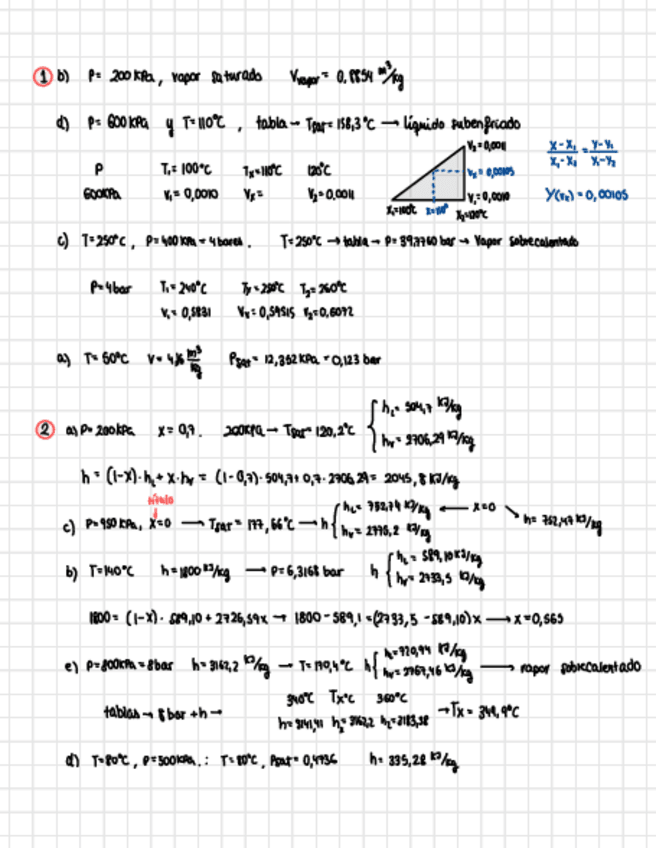 ① b) P= 200 kPa, vapor saturado Vvapor = 0,8854 m³/kg
d) P= 600 kPa y T=110°C, tabla → Tsat= 158,3°C → líquido subenfriado
P T₁= 100°C Tx=110°C 120°C
600kPa V₁= 0,0010 Vx= V₂=0,0011
V₂=0,0011
Vx=0,00105
V₁=0,0010
X₁=100°C X=110° X₂=120°C
X-X₁/X₁-X₂ = Y-Y₁/Y₁-Y₂
Y(Vx)=0,00105
c) T=250°C, P=400 kPa = 4 bares. T=250°C → tabla → P= 39,7760 bar → Vapor sobrecalentado
P=4bar T₁= 240°C Tx=250°C T₂=260°C
V₁= 0,5831 Vx= 0,59515 V₂=0,6072
a) T= 50°C V= m³/kg Psat= 12,352 kPa = 0,123 bar
② a) P=200kPa x= 0,7. 200kPa → Tsat=120,2°C { hL= 504,7 kJ/kg
hv= 2706,29 kJ/kg
h= (1-x)·hL + x·hv = (1-0,7)·504,7+0,7·2706,29= 2045,8 kJ/kg
título
c) P=950 kPa, x=0 → Tsat= 177,66°C → h { hL= 752,74 kJ/kg ← x=0 ↘ h= 752,47 kJ/kg
hv= 2776,2 kJ/kg
b) T=140°C h=1800 kJ/kg → P=6,3168 bar h { hL= 589,10 kJ/kg
hv= 2733,5 kJ/kg
1800= (1-x)·589,10+2726,59x → 1800-589,1=(2733,5-589,10)x → x=0,565
e) P=800kPa=8bar h= 3162,2 kJ/kg → T=170,4°C h { h=720,94 kJ/kg
hv=2767,46 kJ/kg → vapor sobrecalentado
340°C Tx°C 360°C
tablas → 8bar +h → h=3141,41 hx=3162,2 h₂=3183,38 → Tx= 349,9°C
d) T=80°C, P=500kPa.: T=80°C, Psat= 0,4736 h= 335,28 kJ/kg